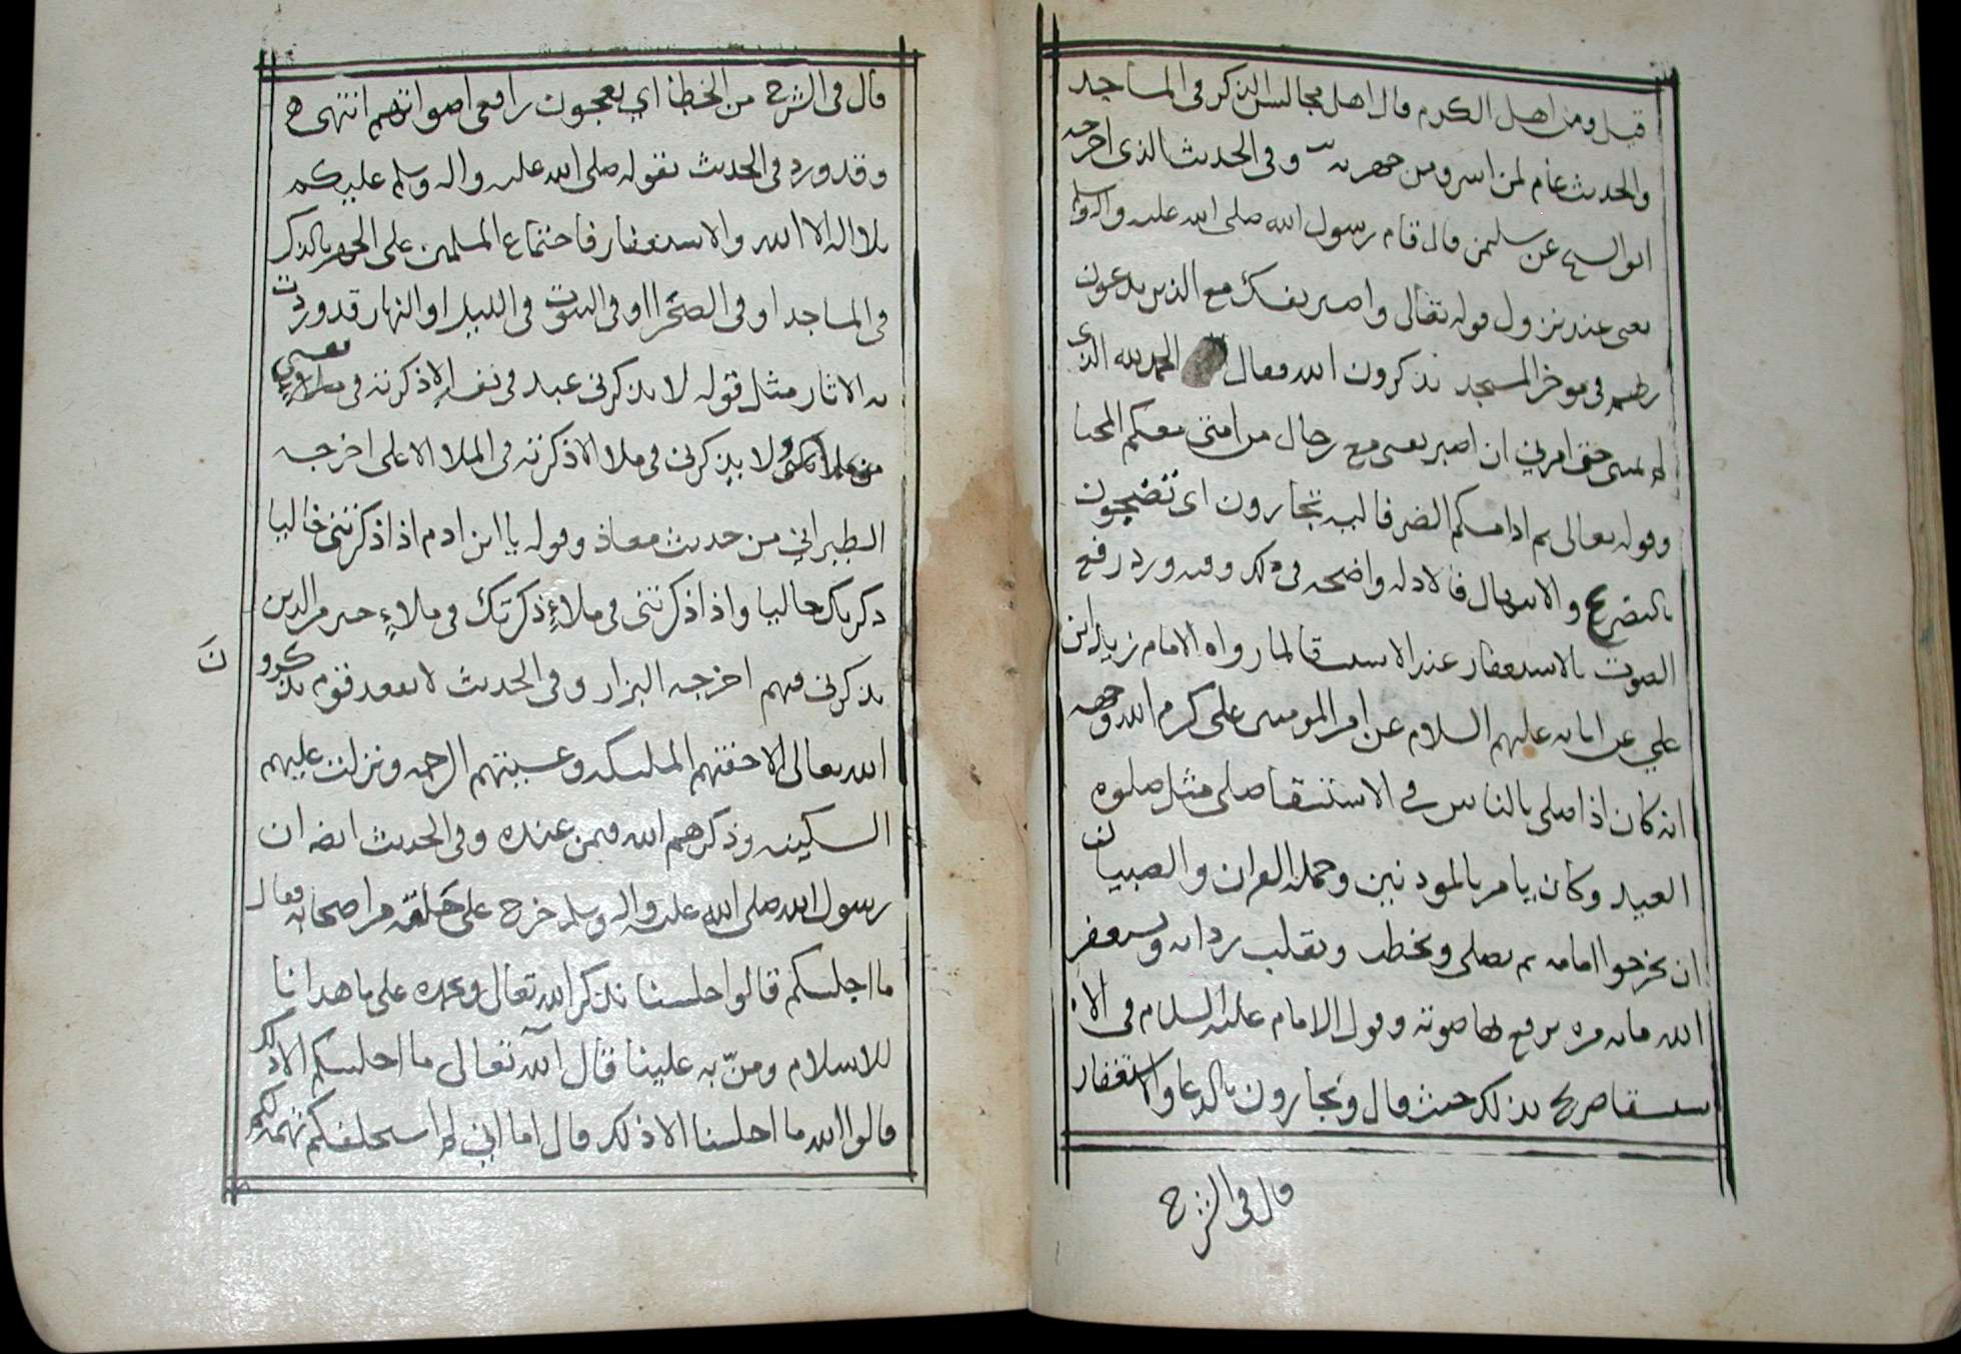 قيل ومن اهل الكرم قال اهل مجالس الذكر في المساجد
والحديث عام لمن اسر ومن جهر به وفي الحديث الذي اخرجه
ابو الشيخ عن سليمن قال قام رسول الله صلى الله عليه واله وسلم
يعني عند نزول قوله تعالى واصبر نفسك مع الذين يدعون
ربهم في موخر المسجد يذكرون الله فقال الحمد لله الذي
لم يمتني حتى امرني ان اصبر نفسي مع رجال من امتي معكم المحيا
وقوله تعالى ثم اذا مسكم الضر فاليه تجارون اي تضجون
بالتضرع والابتهال فالادله واضحه في ذلك وفيه ورد رفع
الصوت بالاستغفار عند الاستسقا لما رواه الامام زيد ابن
علي عن ابائه عليهم السلام عن امر المومنين علي كرم الله وجهه
انه كان اذا صلى بالناس في الاستسقا صلى مثل صلوه
العيد وكان يامر بالموذنين وحملة القران والصبيان
ان يخرجوا امامه ثم يصلي ويخطب ويقلب رداه ويستغفر
الله مايه مره يرفع بها صوته وقول الامام عليه السلام في الا
ستسقا صريح بذلك حيث قال ويجارون بالدعا والاستغفار
قال في الشرح
قال في الشرح من الخطا اي يعجون رافعي اصواتهم انتهى
وقد ورد في الحديث بقوله صلى الله عليه واله وسلم عليكم
بلا اله الا الله والاستغفار فاجتماع المسلمين على الجهر بالذكر
في المساجد او في الصحرا او في البيوت في الليل او النهار قد وردت
به الاثار مثل قوله لا يذكرني عبد في نفسه الا ذكرته في ملاءٍ
من ملائكتي ولا يذكرني في ملا الا ذكرته في الملا الاعلى اخرجه
الطبراني من حديث معاذ وقوله يا ابن ادم اذا ذكرتني خاليا
ذكرتك خاليا واذا ذكرتني في ملاءٍ ذكرتك في ملاءٍ خير من الذين
يذكرني فيهم اخرجه البزار وفي الحديث لا يقعد قوم يذكرون
الله تعالى الا حفتهم المليكه وغشيتهم الرحمه ونزلت عليهم
السكينه وذكرهم الله فيمن عنده وفي الحديث ايضا ان
رسول الله صلى الله عليه واله وسلم خرج على حلقه من اصحابه فقال
ما اجلسكم قالوا جلسنا نذكر الله تعالى ونحمده على ما هدانا
للاسلام ومنّ به علينا قال آلله تعالى ما اجلسكم الا ذلك
قالوا الله ما اجلسنا الا ذلك قال اما اني لم استحلفكم تهمه لكم